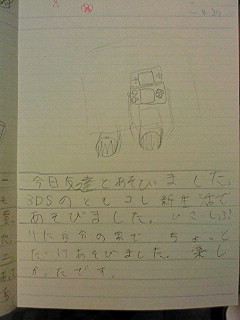 今日友達とあそびました。
3DSのともコレ新生活で
あそびました。ひさしぶ
りだったので ちょっと
だけあそびました。楽し
かったです。